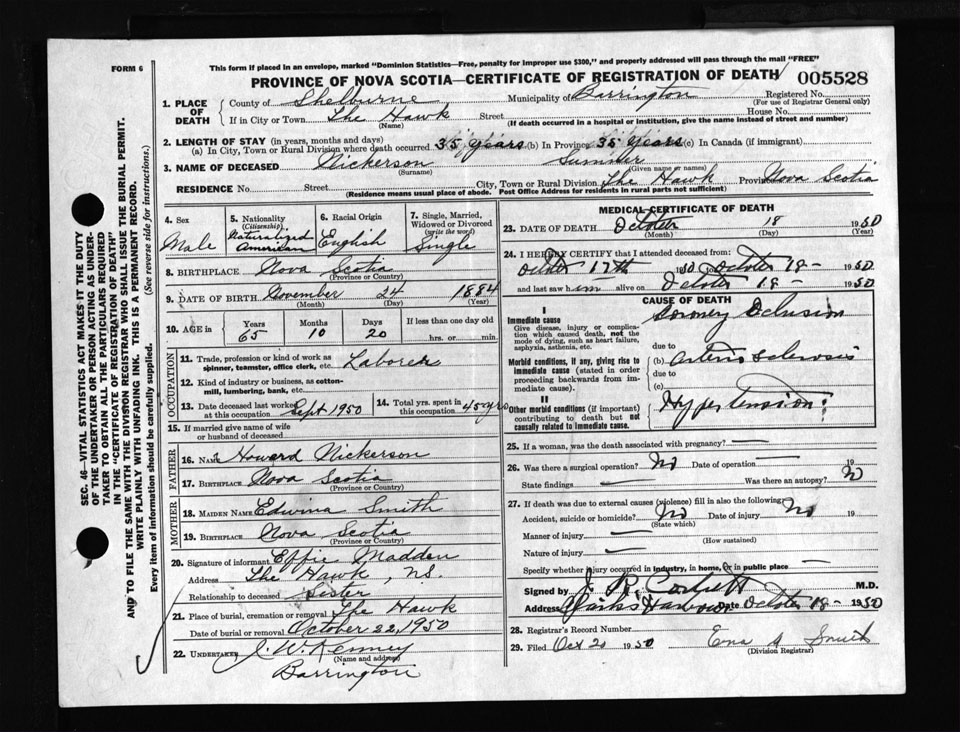 FORM 6
This form if placed in an envelope, marked "Dominion Statistics—Free, penalty for improper use $300," and properly addressed will pass through the mail "FREE"
PROVINCE OF NOVA SCOTIA—CERTIFICATE OF REGISTRATION OF DEATH
005528
SEC. 46—VITAL STATISTICS ACT MAKES IT THE DUTY
OF THE UNDERTAKER OR PERSON ACTING AS UNDER-
TAKER TO OBTAIN ALL THE PARTICULARS REQUIRED
IN THE "CERTIFICATE OF REGISTRATION OF DEATH"
AND TO FILE THE SAME WITH THE DIVISION REGISTRAR WHO SHALL ISSUE THE BURIAL PERMIT.
WRITE PLAINLY WITH UNFADING INK. THIS IS A PERMANENT RECORD.
Every item of information should be carefully supplied. (See reverse side for instructions.)
1. PLACE OF DEATH
County of Shelburne Municipality of Barrington Registered No.
(For use of Registrar General only)
If in City or Town The Hawk Street House No.
(Name) (If death occurred in a hospital or institution, give the name instead of street and number)
2. LENGTH OF STAY (in years, months and days)
(a) In City, Town or Rural Division where death occurred 35 years (b) In Province 35 years (c) In Canada (if immigrant)
3. NAME OF DECEASED Nickerson Sumner
(Surname) (Given name or names)
RESIDENCE No. Street City, Town or Rural Division The Hawk Province Nova Scotia
(Residence means usual place of abode. Post Office Address for residents in rural parts not sufficient)
4. Sex
Male
5. Nationality
(Citizenship)
Naturalized
American
6. Racial Origin
English
7. Single, Married,
Widowed or Divorced
(write the word)
Single
8. BIRTHPLACE Nova Scotia
(Province or Country)
9. DATE OF BIRTH November 24 1884
(Month) (Day) (Year)
10. AGE in
Years Months Days If less than one day old
65 10 20 hrs. or min.
OCCUPATION
11. Trade, profession or kind of work as
spinner, teamster, office clerk, etc. Laborer
12. Kind of industry or business, as cotton-
mill, lumbering, bank, etc.
13. Date deceased last worked
at this occupation Sept 1950
14. Total yrs. spent in
this occupation 45 yrs
15. If married give name of wife
or husband of deceased
FATHER
16. Name Howard Nickerson
17. Birthplace Nova Scotia
(Province or Country)
MOTHER
18. MAIDEN NAME Edwina Smith
19. BIRTHPLACE Nova Scotia
(Province or Country)
20. Signature of informant Effie Madden
Address The Hawk, NS.
Relationship to deceased Sister
21. Place of burial, cremation or removal The Hawk
Date of burial or removal October 22, 1950
22. UNDERTAKER J. W. Kenney
(Name and address)
Barrington
MEDICAL CERTIFICATE OF DEATH
23. DATE OF DEATH October 18 1950
(Month) (Day) (Year)
24. I HEREBY CERTIFY that I attended deceased from:
October 17th 1950 to October 18- 1950
and last saw him alive on October 18- 1950
CAUSE OF DEATH
I
Immediate cause
Give disease, injury or complica-
tion which caused death, not the
mode of dying, such as heart failure,
asphyxia, asthenia, etc.
Coronary Oclusion
due to
Morbid conditions, if any, giving rise to
immediate cause (stated in order
proceeding backwards from im-
mediate cause).
(b) arterio sclerosis
due to
(c)
II
Other morbid conditions (if important)
contributing to death but not
causally related to immediate cause.
Hypertension
25. If a woman, was the death associated with pregnancy? —
26. Was there a surgical operation? No Date of operation — 19
State findings — Was there an autopsy? No
27. If death was due to external causes (violence) fill in also the following:
Accident, suicide or homicide? No Date of injury No 19
(State which)
Manner of injury —
(How sustained)
Nature of injury —
Specify whether injury occurred in industry, in home, or in public place —
Signed by J. R. Corbett M.D.
Address Clarks Harbour Date October 18- 1950
28. Registrar's Record Number
29. Filed Oct 20 1950 Ena A Smith
(Division Registrar)